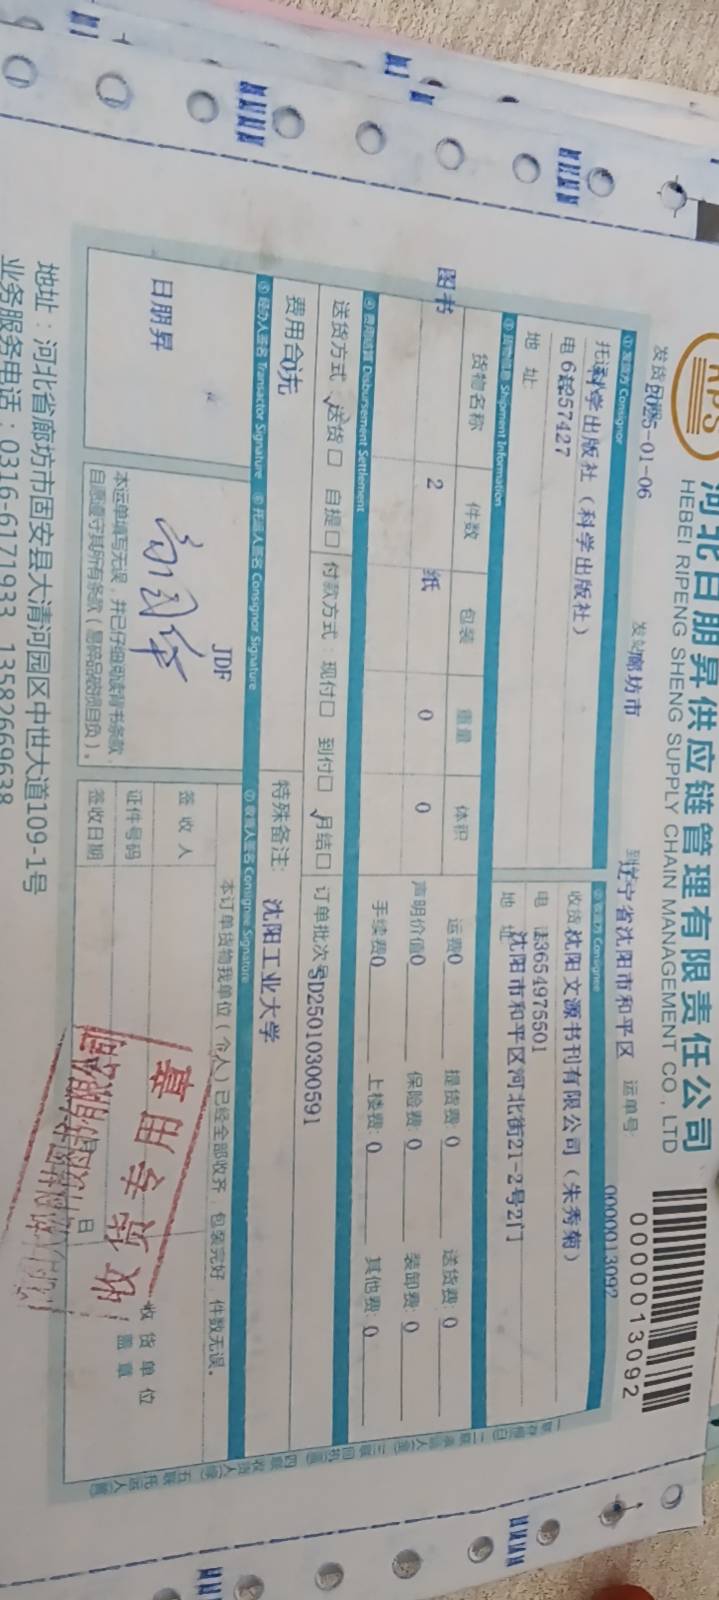 RPS
河北日朋昇供应链管理有限责任公司
HEBEI RIPENG SHENG SUPPLY CHAIN MANAGEMENT CO., LTD
0000013092
发货日期2025-01-06 发站廊坊市 到辽宁省沈阳市和平区 运单号: 0000013092
① 发货方 Consignor
② 收货方 Consignee
科学出版社（科学出版社）
收货 沈阳文源书刊有限公司（朱秀菊）
57427
电 13654975501
地 址
地 址 沈阳市和平区河北街21-2号2门
③ 货物信息 Shipment Information
货物名称 件数 包装 重量 体积
图书 2 纸 0 0
运费0 提货费: 0 送货费: 0
声明价值0 保险费: 0 装卸费: 0
手续费0 上楼费: 0 其他费: 0
④ 费用结算 Disbursement Settlement
送货方式: 送货□ 自提□ 付款方式: 现付□ 到付□ 月结□ 订单批次号SD25010300591
费用合 0元
特殊备注: 沈阳工业大学
⑤ 经办人签名 Transactor Signature ⑥ 托运人签名 Consignor Signature ⑦ 收货人签名 Consignee Signature
日朋昇
JDF
本运单填写无误，并已仔细阅读背书条款，
自愿遵守其所有条款（易碎品破损自负）。
本订单货物我单位（个人）已经全部收齐，包装完好，件数无误。
签 收 人
证件号码
签收日期
日
收货单位
盖 章
收货专用章
地址：河北省廊坊市固安县大清河园区中世大道109-1号
业务服务电话：0316-6171933 13582669638